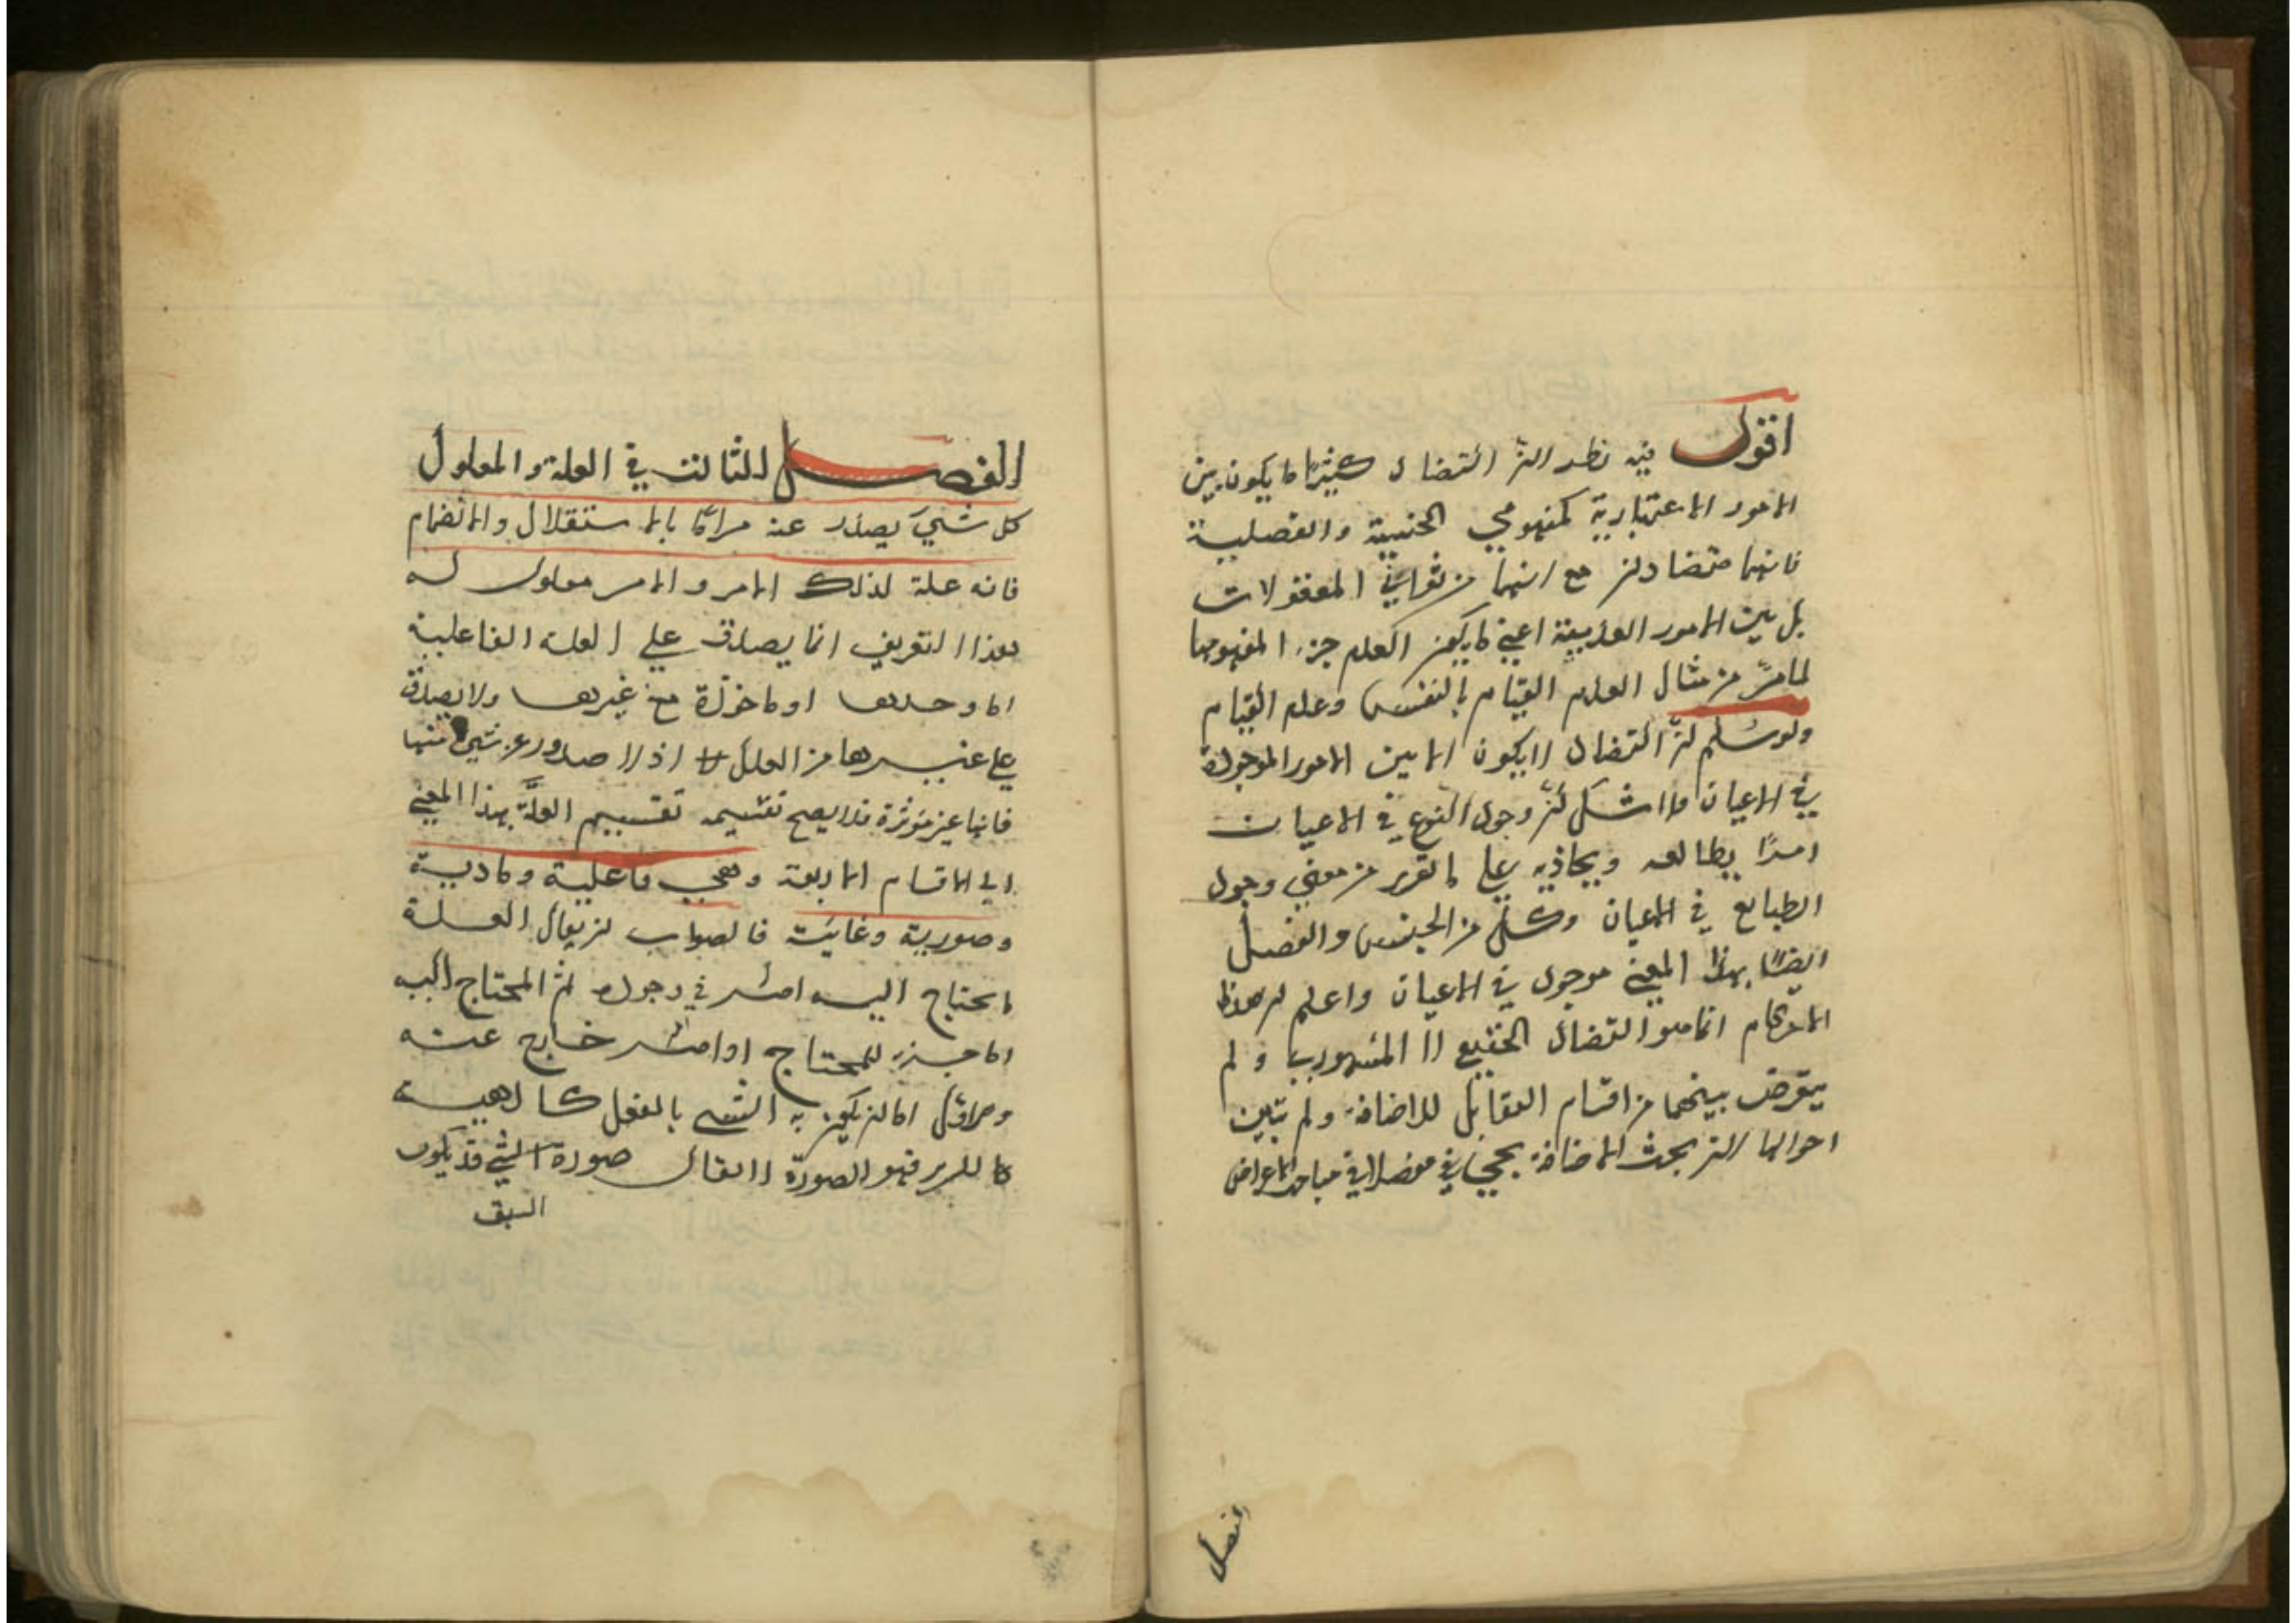 اقول فيه نظر لان التضاد كثيرا ما يكون بين
الامور الاعتبارية كمفهومي الجنسية والفصلية
فانهما متضادان مع انهما من ثواني المعقولات
بل بين الامور العدمية اعني ما يكون العدم جزء المفهومها
لما مر من مثال العدم القيام بالنفس وعدم القيام
ولو سلم ان التضاد لا يكون الا بين الامور الموجودة
في الاعيان فلا شك ان وجود النوع في الاعيان
امرا يطابقه ويحاذيه على ما تقرر من معنى وجود
الطبايع في الاعيان وكل من الجنس والفصل
ايضا بهذا المعنى موجود في الاعيان واعلم ان هذا
الاحكام انما هو التضاد الحقيقي لا المشهوري ولم
يتعرض بينهما من اقسام التقابل للاضافة ولم يتبين
احوالها لان بحث الاضافة يجيء في مباحث الاعراض
الفصل
الفصل الثالث في العلة والمعلول
كل شيء يصدر عنه امر اما بالاستقلال والانضمام
فانه علة لذلك الامر والامر معلول له
هذا التعريف انما يصدق على العلة الفاعلية
اما وحدها او ماخوذة مع غيرها ولا يصدق
على غيرها من العلل اذ لا صدور عن شيء منها
فانها غير مؤثرة فلا يصح تقسيم العلة بهذا المعنى
الى الاقسام الاربعة وهي فاعلية ومادية
وصورية وغائية فالصواب ان يقال العلة
ما يحتاج اليه امر في وجوده ثم المحتاج اليه
اما جزء للمحتاج او امر خارج عنه
والاول اما ان يكون به الشيء بالفعل كالهيئة
للسرير فهو الصورة لا يقال صورة الشيء قد يكون